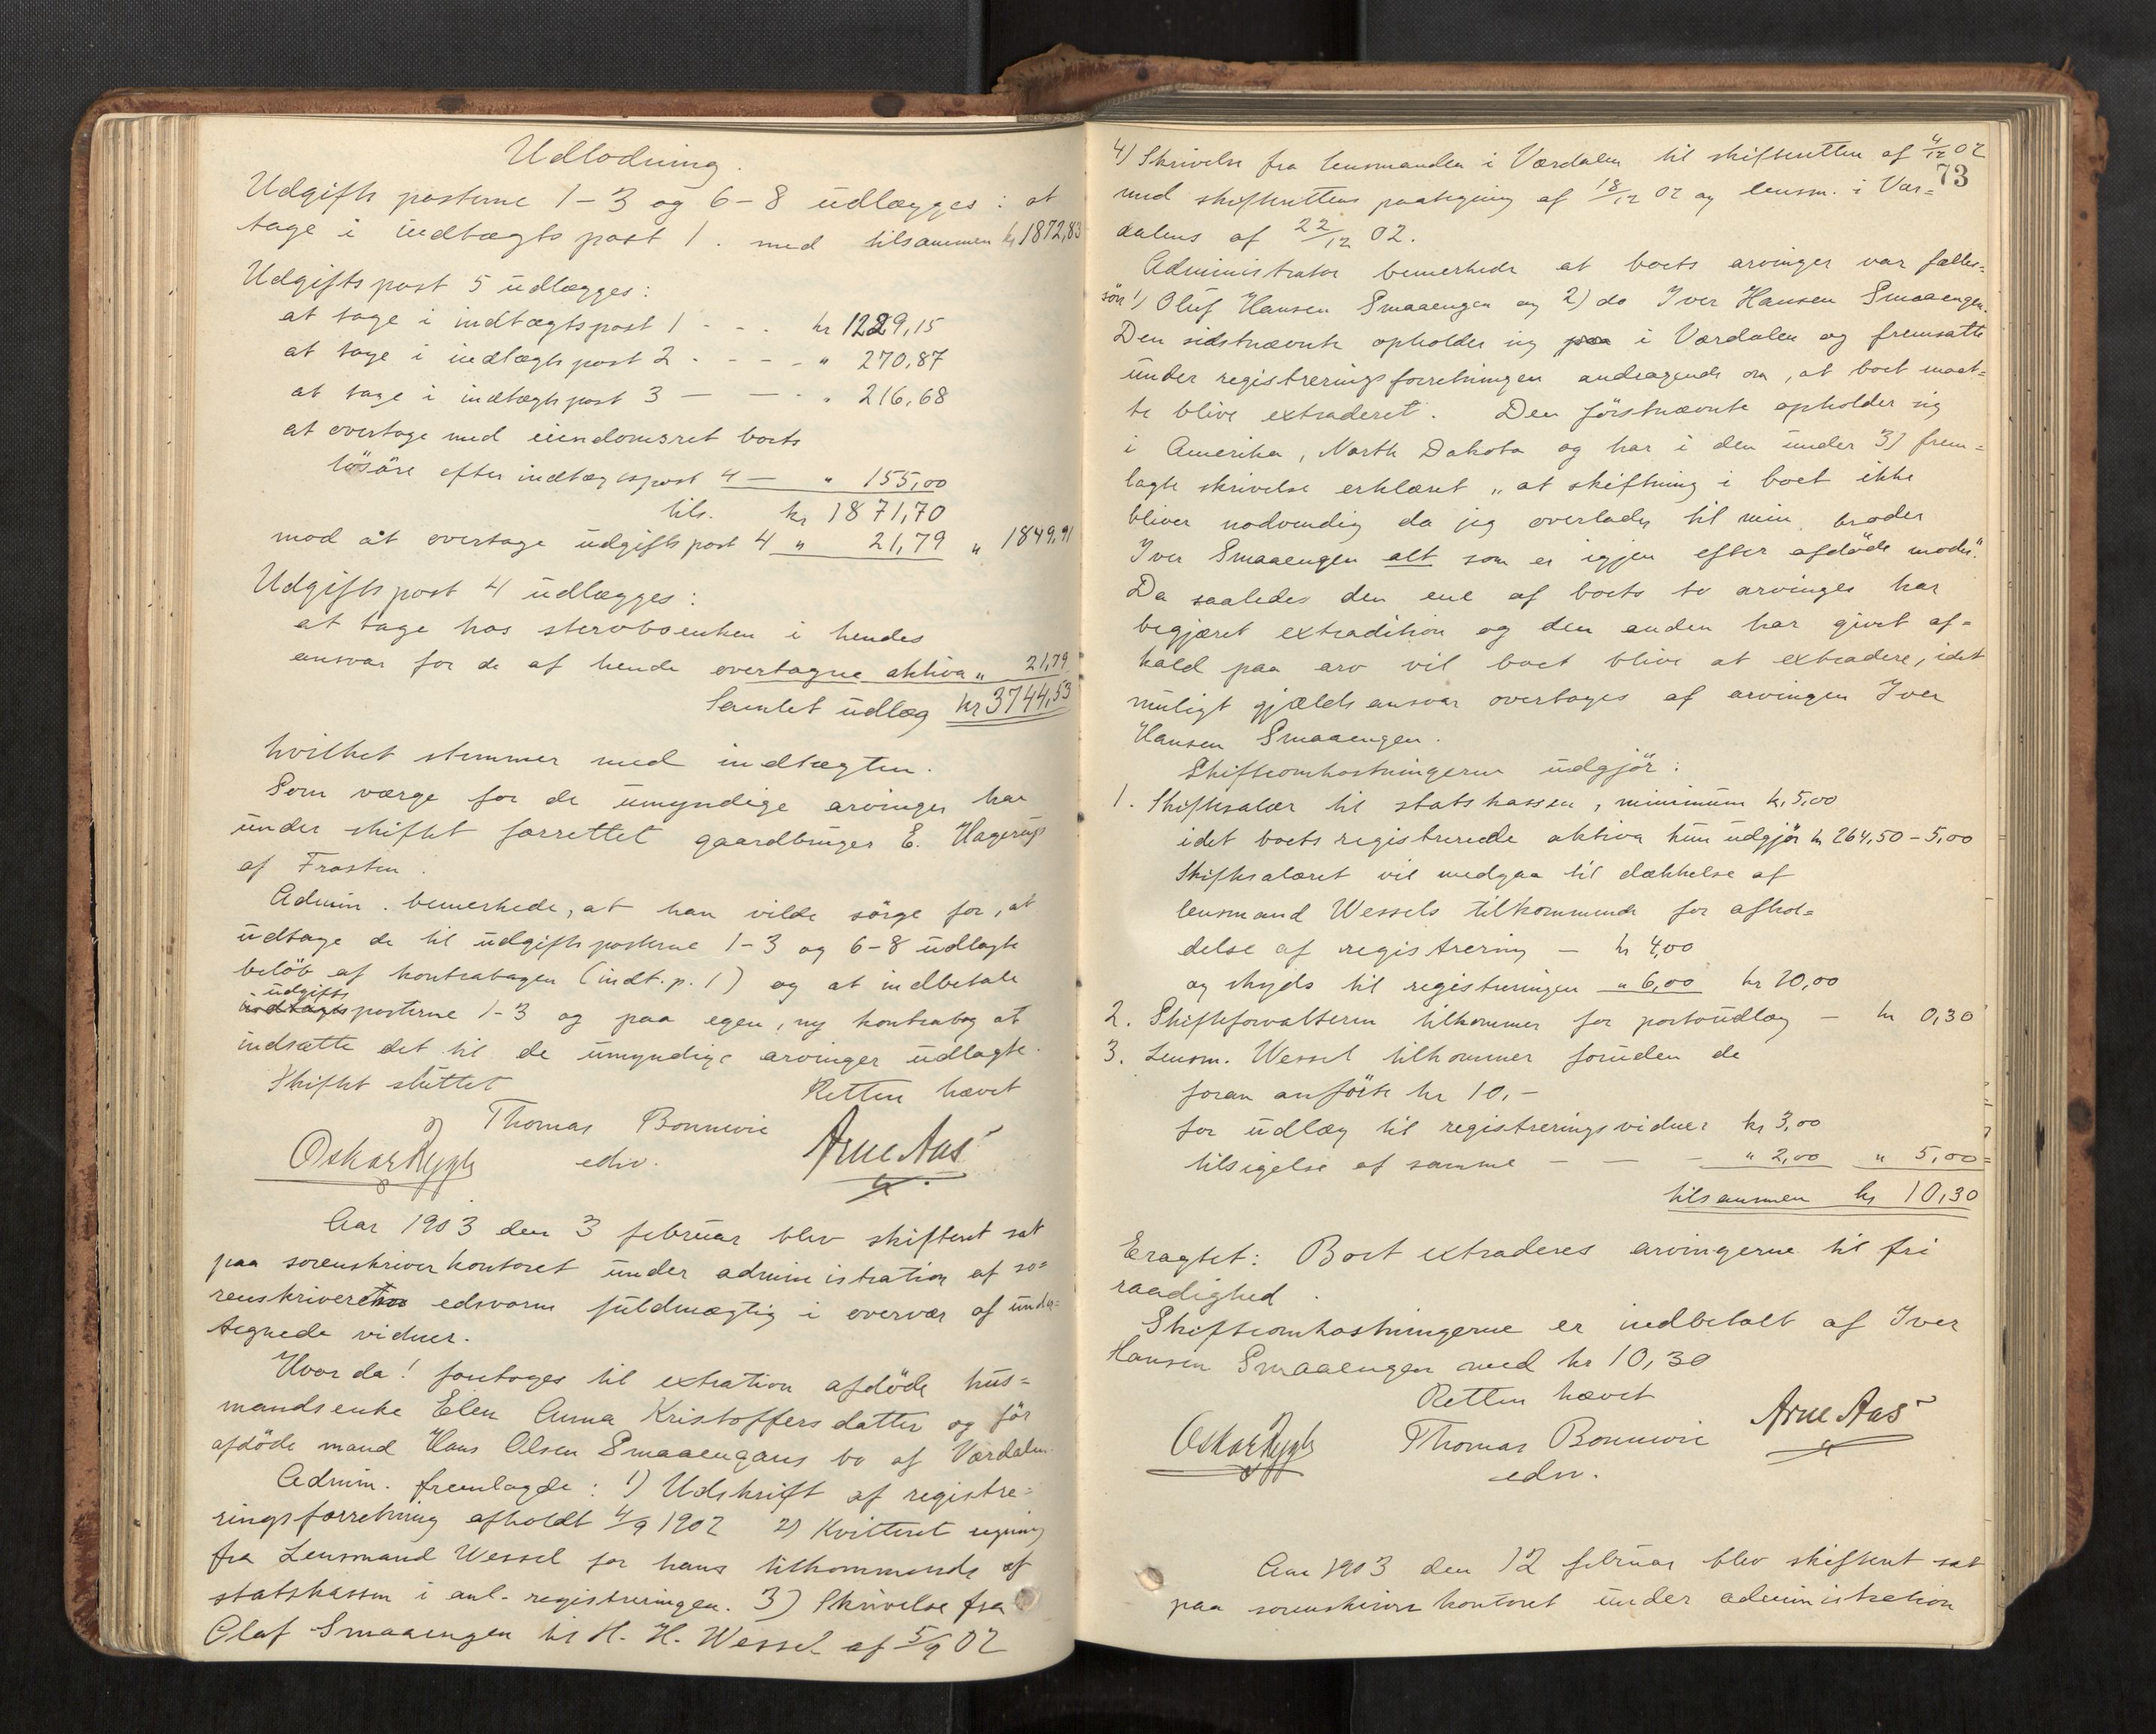 Udlodning.
Udgifts posterne 1-3 og 6-8 udlægges: at
tage i indtægts post 1. med tilsammen kr 1872,83
Udgiftspost 5 udlægges:
at tage i indtægtspost 1 - - - kr 1229,15
at tage i indtægtspost 2 - - - - " 270,87
at tage i indtægtspost 3 — — - " 216,68
at overtage med eiendomsret boets
løsøre efter indtægtspost 4 — " 155,00
tils. kr 1871,70
mod at overtage udgiftspost 4 " 21,79 " 1849,91
Udgiftspost 4 udlægges:
at tage hos stervbsenken i hendes
ansvar for de af hende overtagne aktiva " 21,79
Samlet udlæg kr 3744,53
hvilket stemmer med indtægten.
Som værge for de umyndige arvinger har
under skiftet forrettet gaardbruger E. Hagerup
af Frosten.
Admin. bemerkede, at han vilde sörge for, at
udtage de til udgiftsposterne 1-3 og 6-8 udlagte
belöb af kontrabogen (indt. p. 1) og at indbetale
udgifts
indtægtsposterne 1-3 og paa egen, ny kontrabog at
indsætte det til de umyndige arvinger udlagte.
Skiftet sluttet
Retten hævet
Thomas Bonnevie
Oskar Rygh edsv. Arne Aas
Aar 1903 den 3 februar blev skifteret sat
paa sorenskriverkontoret under administration af so=
renskriverens edsvorne fuldmægtig i overvær af under=
tegnede vidner.
Hvor da! foretoges til extration afdöde hus=
mandsenke Elen Anna Kristoffersdatter og för
afdöde mand Hans Olsen Smaaengans bo af Værdalen.
Admin. fremlagde: 1) Udskrift af registre=
ringsforretning afholdt 4/9 1902 2) Kvitteret regning
fra Lensmand Wessel for hans tilkommende af
statskassen i anl. registreringen. 3) Skrivelse fra
Olaf Smaaengen til H. H. Wessel af 5/9 02
73
4) Skrivelse fra lensmanden i Værdalen til skifteretten af 4/12 02
med skifterettens paategning af 18/12 02 og lensm. i Vær=
dalens af 22/12 02.
Administrator bemerkede at boets arvinger var fælles=
sön 1) Oluf Hansen Smaaengen og 2) do Iver Hansen Smaaengen.
Den sidstnævnte opholder sig paa i Værdalen og fremsatte
under registreringsforretningen andragende om, at boet maat=
te blive extraderet. Den förstnævnte opholder sig
i Amerika, North Dakota og har i den under 3) frem=
lagte skrivelse erklæret „at skiftning i boet ikke
bliver nødvendig da jeg overlader til min broder
Iver Smaaengen alt som er igjen efter afdöde moder".
Da saaledes den ene af boets to arvinger har
begjæret extradition og den anden har givet af=
kald paa arv vil boet blive at extradere, idet
muligt gjældsansvar overtages af arvingen Iver
Hansen Smaaengen.
Skifteomkostningerne udgjör:
1. Skiftesalær til statskassen, minimum kr. 5,00
idet boets registrerede aktiva kun udgjör kr 264,50 - 5,00
Skiftesalæret vil medgaa til dækkelse af
lensmand Wessels tilkommende for afhol=
delse af registrering — kr 4,00
og skyds til registreringen " 6,00 kr 10,00
2. Skifteforvalteren tilkommer for portoudlæg — kr 0,30
3. Lensm. Wessel tilkommer foruden de
foran anförte kr 10,-
for udlæg til registreringsvidner kr 3,00
tilsigelse af samme — — - " 2,00 " 5,00=
tilsammen kr 10,30
Eragtet: Boet extraderes arvingerne til fri
raadighed.
Skifteomkostningerne er indbetalt af Iver
Hansen Smaaengen med kr 10,30
Retten hævet
Oskar Rygh Thomas Bonnevie Arne Aas
edsv.
Aar 1903 den 12 februar blev skifteret sat
paa sorenskriverkontoret under administration